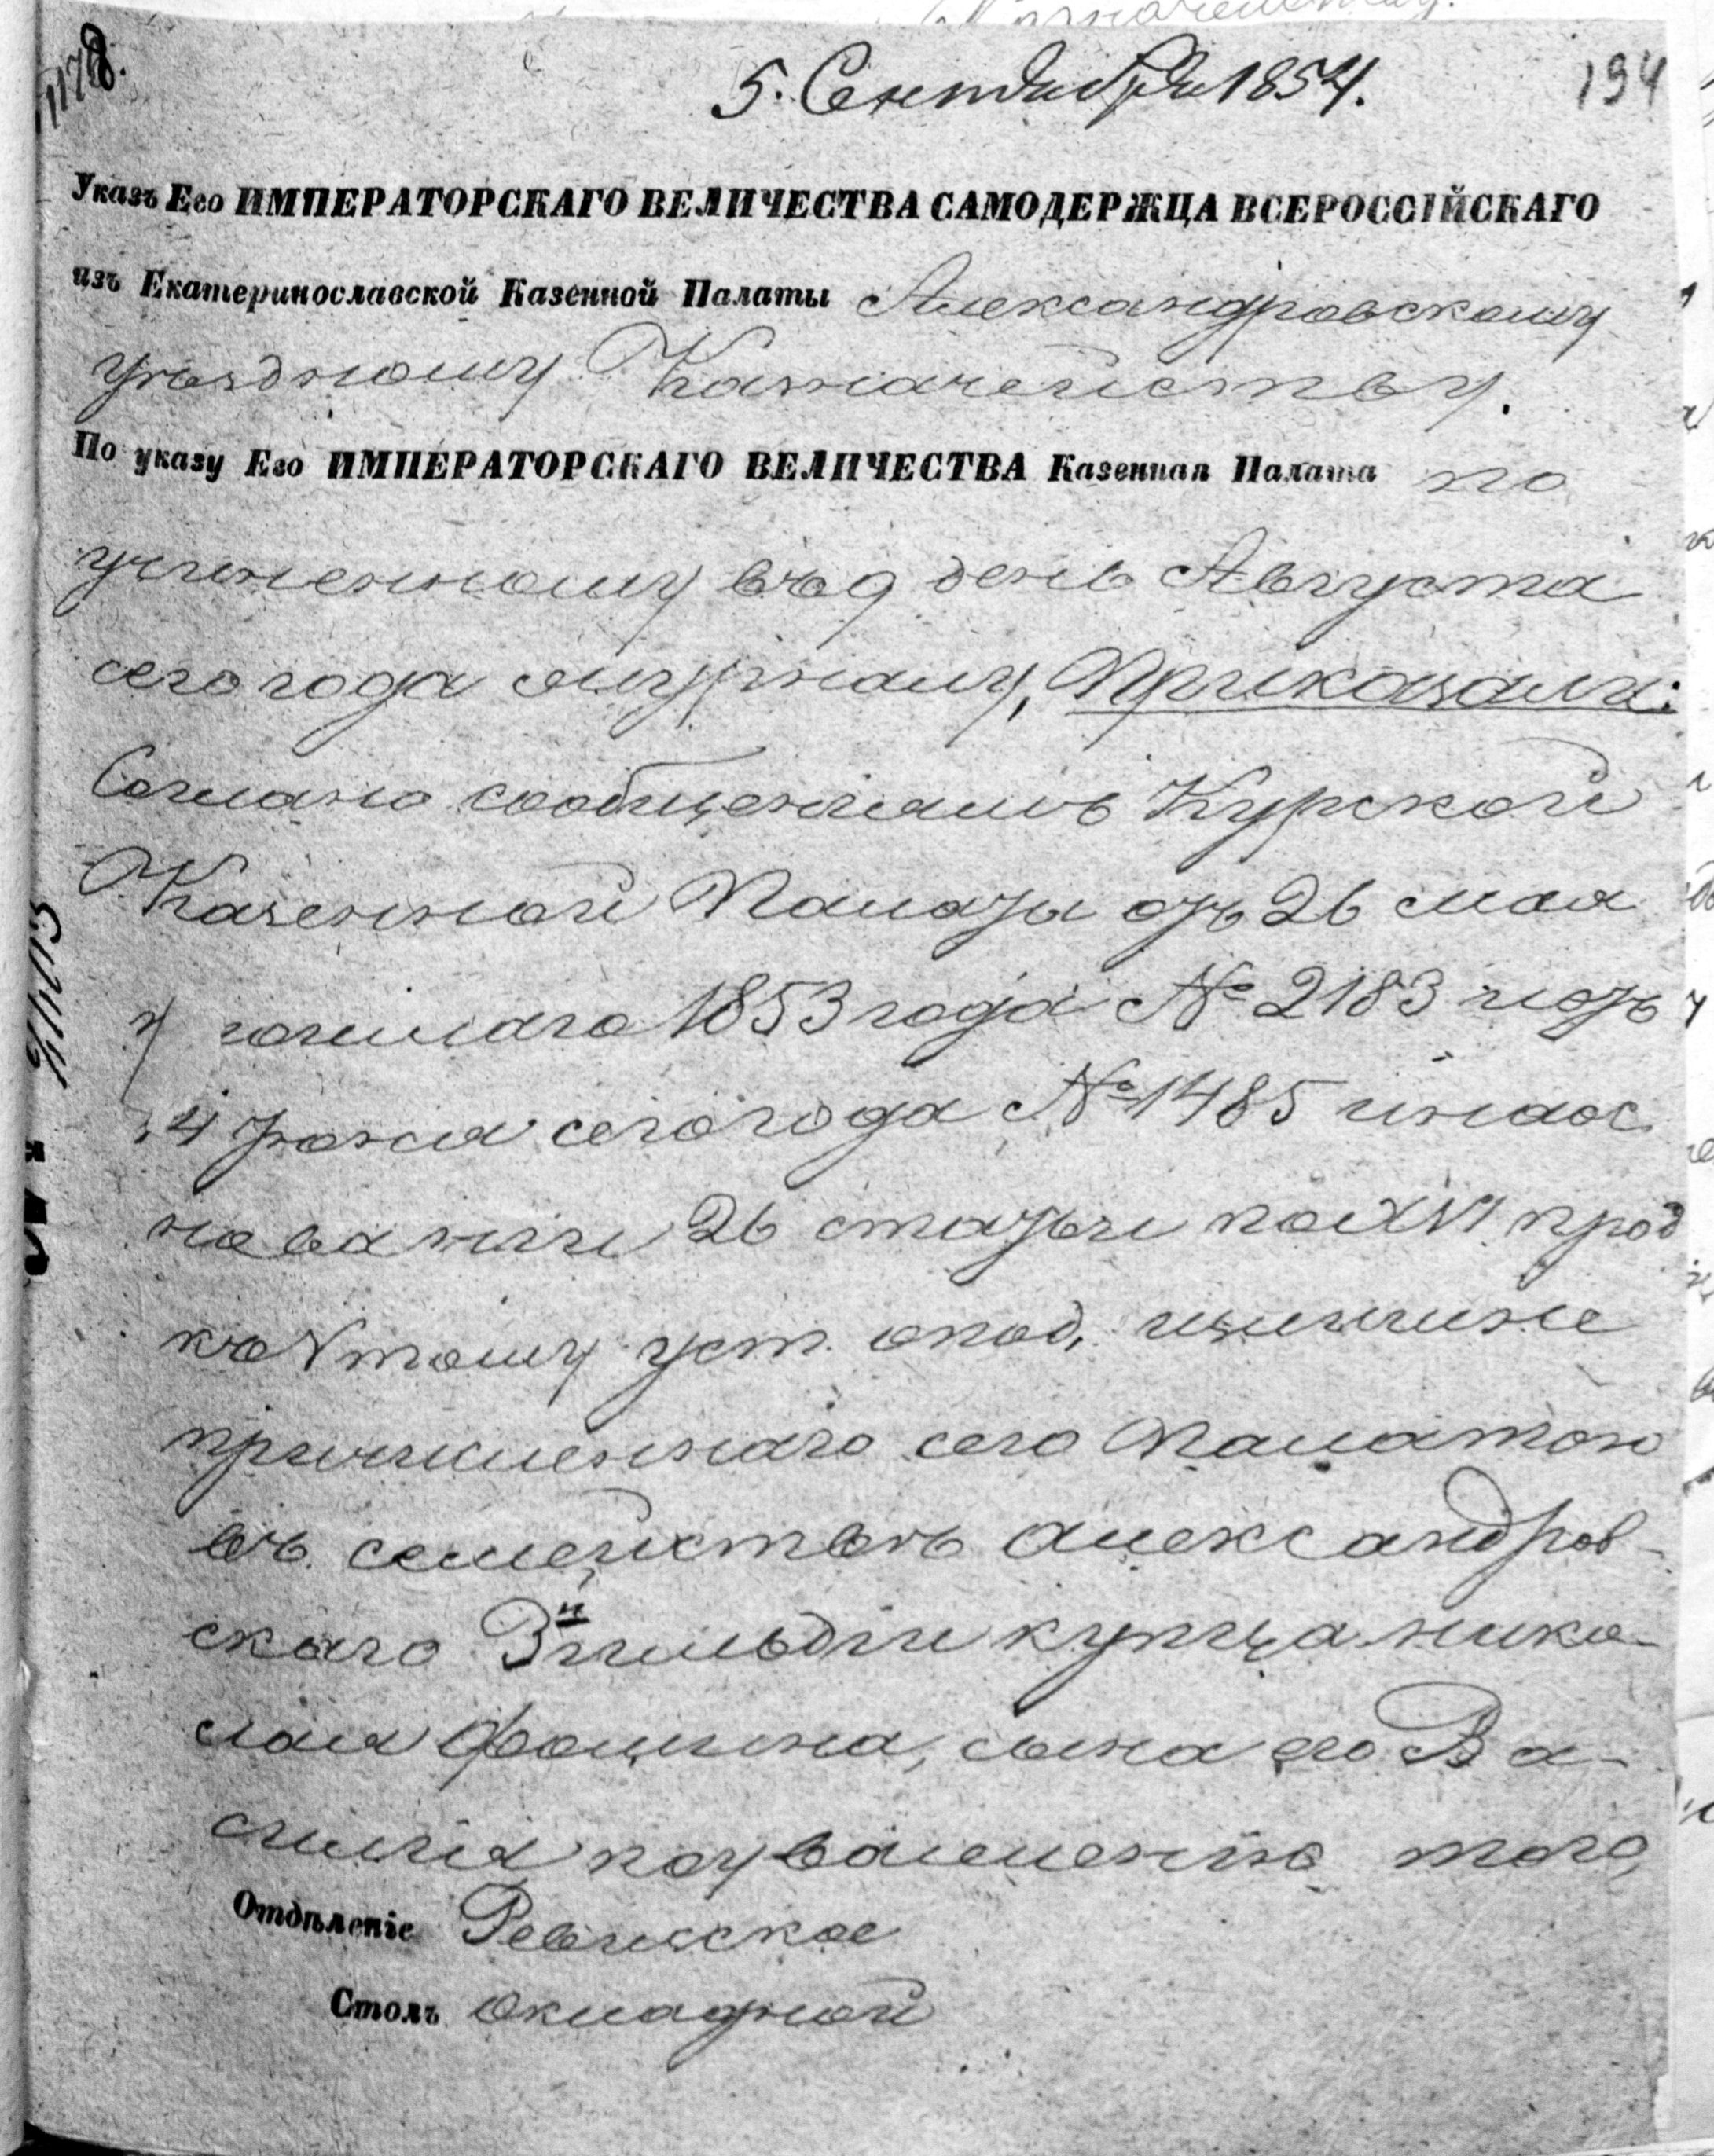 5. Сентября 1854.
194
Указъ Его ИМПЕРАТОРСКАГО ВЕЛИЧЕСТВА САМОДЕРЖЦА ВСЕРОССІЙСКАГО
изъ Екатеринославской Казенной Палаты Александровскому
уѣздному Казначейству.
По указу Его ИМПЕРАТОРСКАГО ВЕЛИЧЕСТВА Казенная Палата по
учиненному въ 9 день Августа
сего года журналу, Приказали:
Согласно сообщеніямъ Курской
Казенной Палаты отъ 26 мая
1853 года № 2183 и отъ
4 Іюня сего года № 1485 и на ос
нованіи 26 статьи по XVI прод
къ V тому уст. о под.
причисленнаго сею Палатою
въ семейство александров-
скаго 3й гильдіи купца Нико-
лая Фомина, сына его Ва-
силія по увольненію того,
Отдѣленіе Ревизское
Столъ Окладной